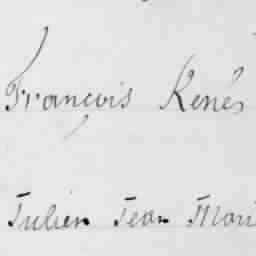 François René
Julien Jean Mari